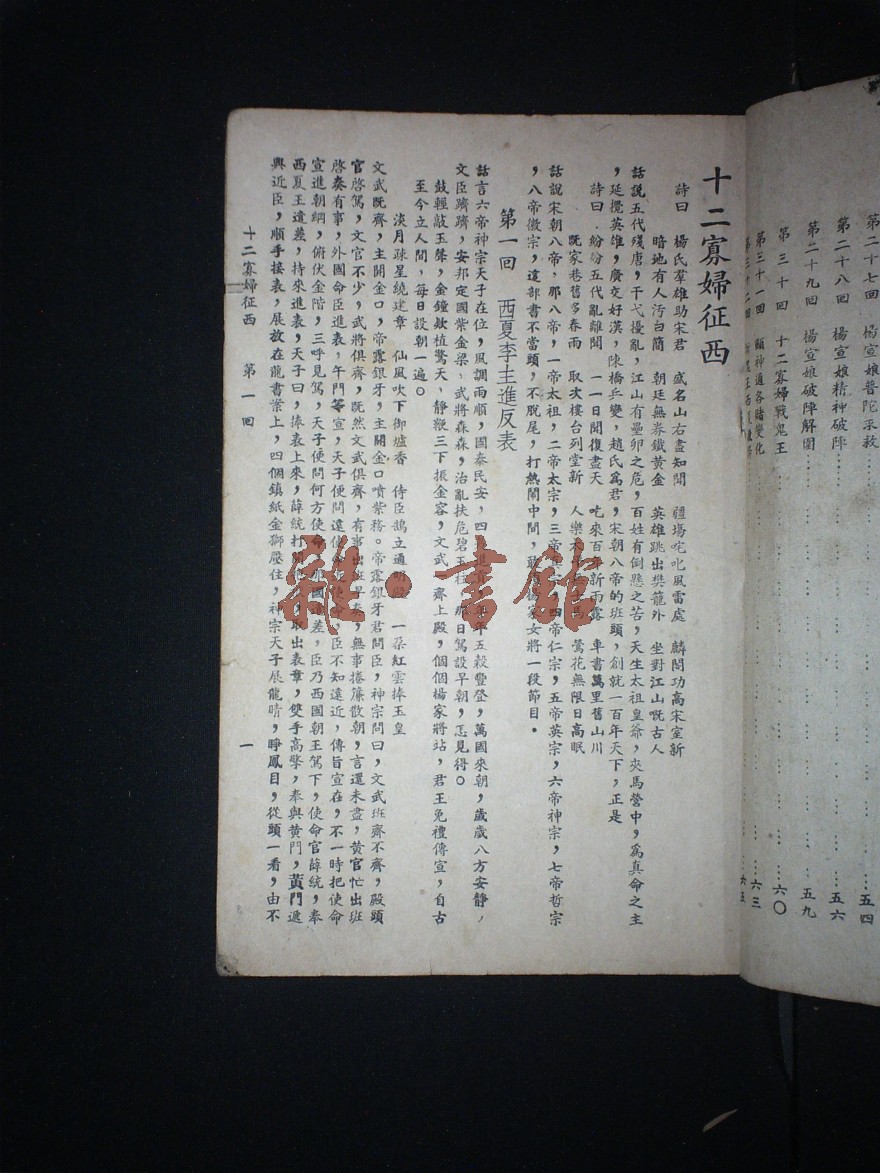 第二十七回　楊宣娘普陀求救……五四
第二十八回　楊宣娘精神破陣……五六
第二十九回　楊宣娘破陣解圍……五九
第三十回　十二寡婦戰鬼王……六〇
第三十一回　顯神通各賭變化……六三
十二寡婦征西
詩曰　楊氏羣雄助宋君　盛名山右盡知聞　疆場咤叱風雷處　麟閣功高宋室新
暗地有人污白簡　朝廷無券鐵黃金　英雄跳出樊籠外　坐對江山嘅古人
話說五代殘唐，干戈擾亂，江山有壘卵之危，百姓有倒懸之苦，天生太祖皇爺，夾馬營中，爲真命之主
，延攬英雄，廣交好漢，陳橋乒變，趙氏爲君，宋朝八帝的班頭，創就一百年天下，正是
詩曰．紛紛五代亂離聞　一一日開復盡天　吃來百年新雨露　車書萬里舊山川
既家巷舊多春雨　取次樓台列堂新　人樂　鶯花無限日高眠
話說宋朝八帝，那八帝，一帝太祖，二帝太宗，三帝　四帝仁宗，五帝英宗，六帝神宗，七帝哲宗
，八帝徽宗，這部書不當頭，不脫尾，打熱鬧中間，　家女將一段節目．
第一回　西夏李主進反表
話言六帝神宗天子在位，風調雨順，國泰民安，四　年五穀豐登，萬國來朝，歲歲八方安靜，
文臣躋躋，安邦定國紫金梁、武將森森，治亂扶危碧玉柱　那日駕設早朝，怎見得。
鼓輕敲玉聲，金鐘欸植驚天、靜鞭三下振金容，文武　齊上殿，個個楊家將站，君王免禮傳宣，自古
至今立人間，每日設朝一遍。
淡月疎星繞建章　仙風吹下御爐香　侍臣鵠立通明殿　一朶紅雲捧玉皇
文武既齊，主開金口，帝露銀牙，主開金口噴紫務。帝露銀牙君問臣，神宗問曰，文武班齊不齊，殿頭
官啓駕，文官不少，武將俱齊，既然文武俱齊，有事出班早奏，無事捲簾散朝，言還未盡，黃官忙出班
啓奏有事，外國命臣進表，午門等宣，天子便問遠使　使命，臣不知遠近，傳旨宣在，不一時把使命
宣進朝綱，俯伏金階，三呼見駕，天子便問何方使命　那國　差，臣乃西國朝王駕下，使命官薛統，奉
西夏王遺差，持來進表，天子曰，捧表上來，薛統打開　取出表章，雙手高擎，奉與黄門，黃門遞
與近臣，順手接表，展放在龍書案上，四個鎮紙金獅壓住，神宗天子展龍晴，睜鳳目，從頭一看，由不
十二寡婦征西　第一回　一
雜·書館